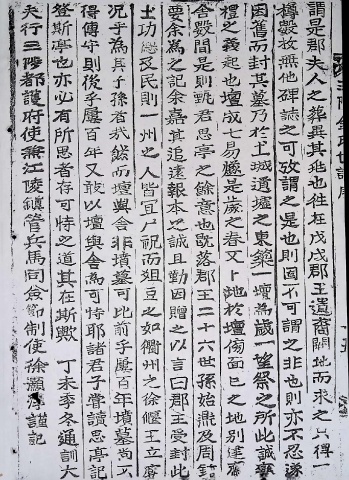 謂是郡夫人之葬異其兆也徃在戊戌郡王遺裔闢地而求之只得一
樽殼故無他碑誌之可攷謂之是也則固不可謂之非也則亦不忍遂
因舊而封其墓乃於土城遺壇之東築一壇爲歲一望祭之所此誠
禮之義起也壇成七易臘是歲之春又卜地於壇傍面巳之地別建齋
舍數間是則甄君思亭之餘意也旣落郡王二十六世孫始鼎及周
要余爲之記余嘉其追遠報本之誠且勤因贈之以言曰郡王受封此
土功德及民則一州之人皆宜尸祝而俎豆之如衢州之徐偃王立廟
况乎爲其子孫者哉然而壇與舍非墳墓可比前乎屢百年墳墓尚不
得傳守則後乎屢百年又敢以壇與舍爲可恃耶諸君子嘗讀思亭記
登斯亭也亦必有所思者存可恃之道其在斯歟 丁未季冬通訓大
夫行三陟都護府使兼江陵鎭管兵馬同僉節制使徐灝淳謹記